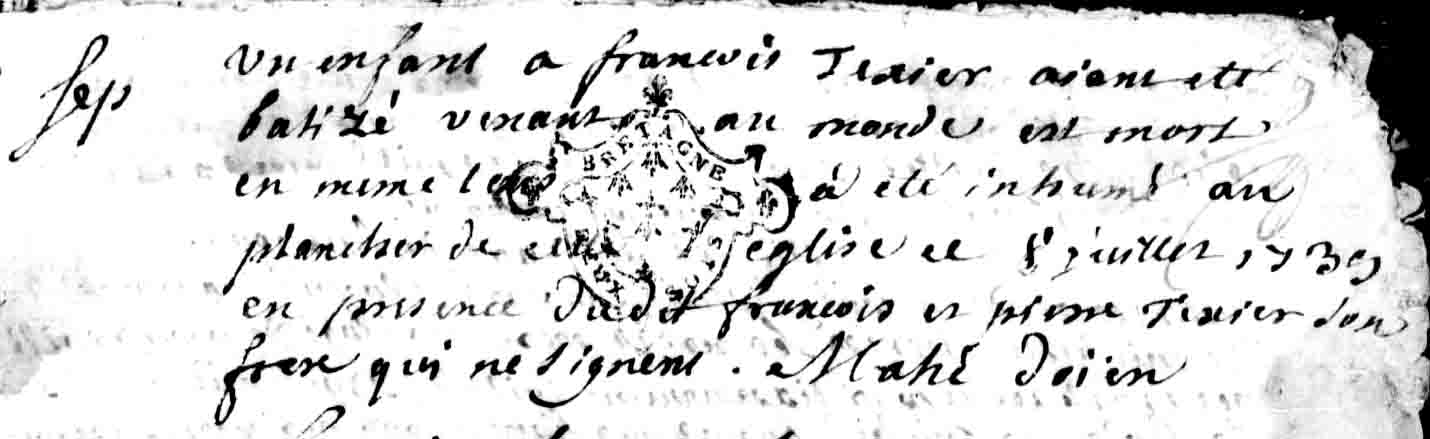 sep
un enfant a francois Texier aient eté
batizé venant au monde est mort
en meme tems à eté inhumé au
plancher de cette eglise ce juillet 1739
en presence dudit francois et pierre Texier son
frere qui ne signent . Mahé doien
BRETAGNE